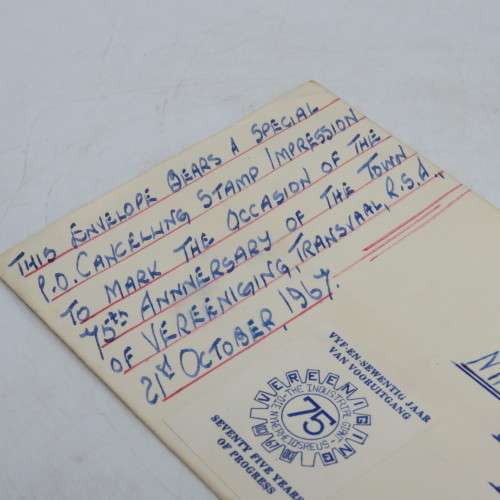 THIS ENVELOPE BEARS A SPECIAL
P.O. CANCELLING STAMP IMPRESSION
TO MARK THE OCCASION OF THE
75th ANNNERSARY OF THE TOWN
OF VEREENIGING, TRANSVAAL, R.S.A.
21st OCTOBER, 1967.
VYF-EN-SEWENTIG JAAR
VAN VOORUITGANG
VEREENIGING
THE INDUSTRIAL
75
SEVENTY FIVE YEARS
OF PROGRESS